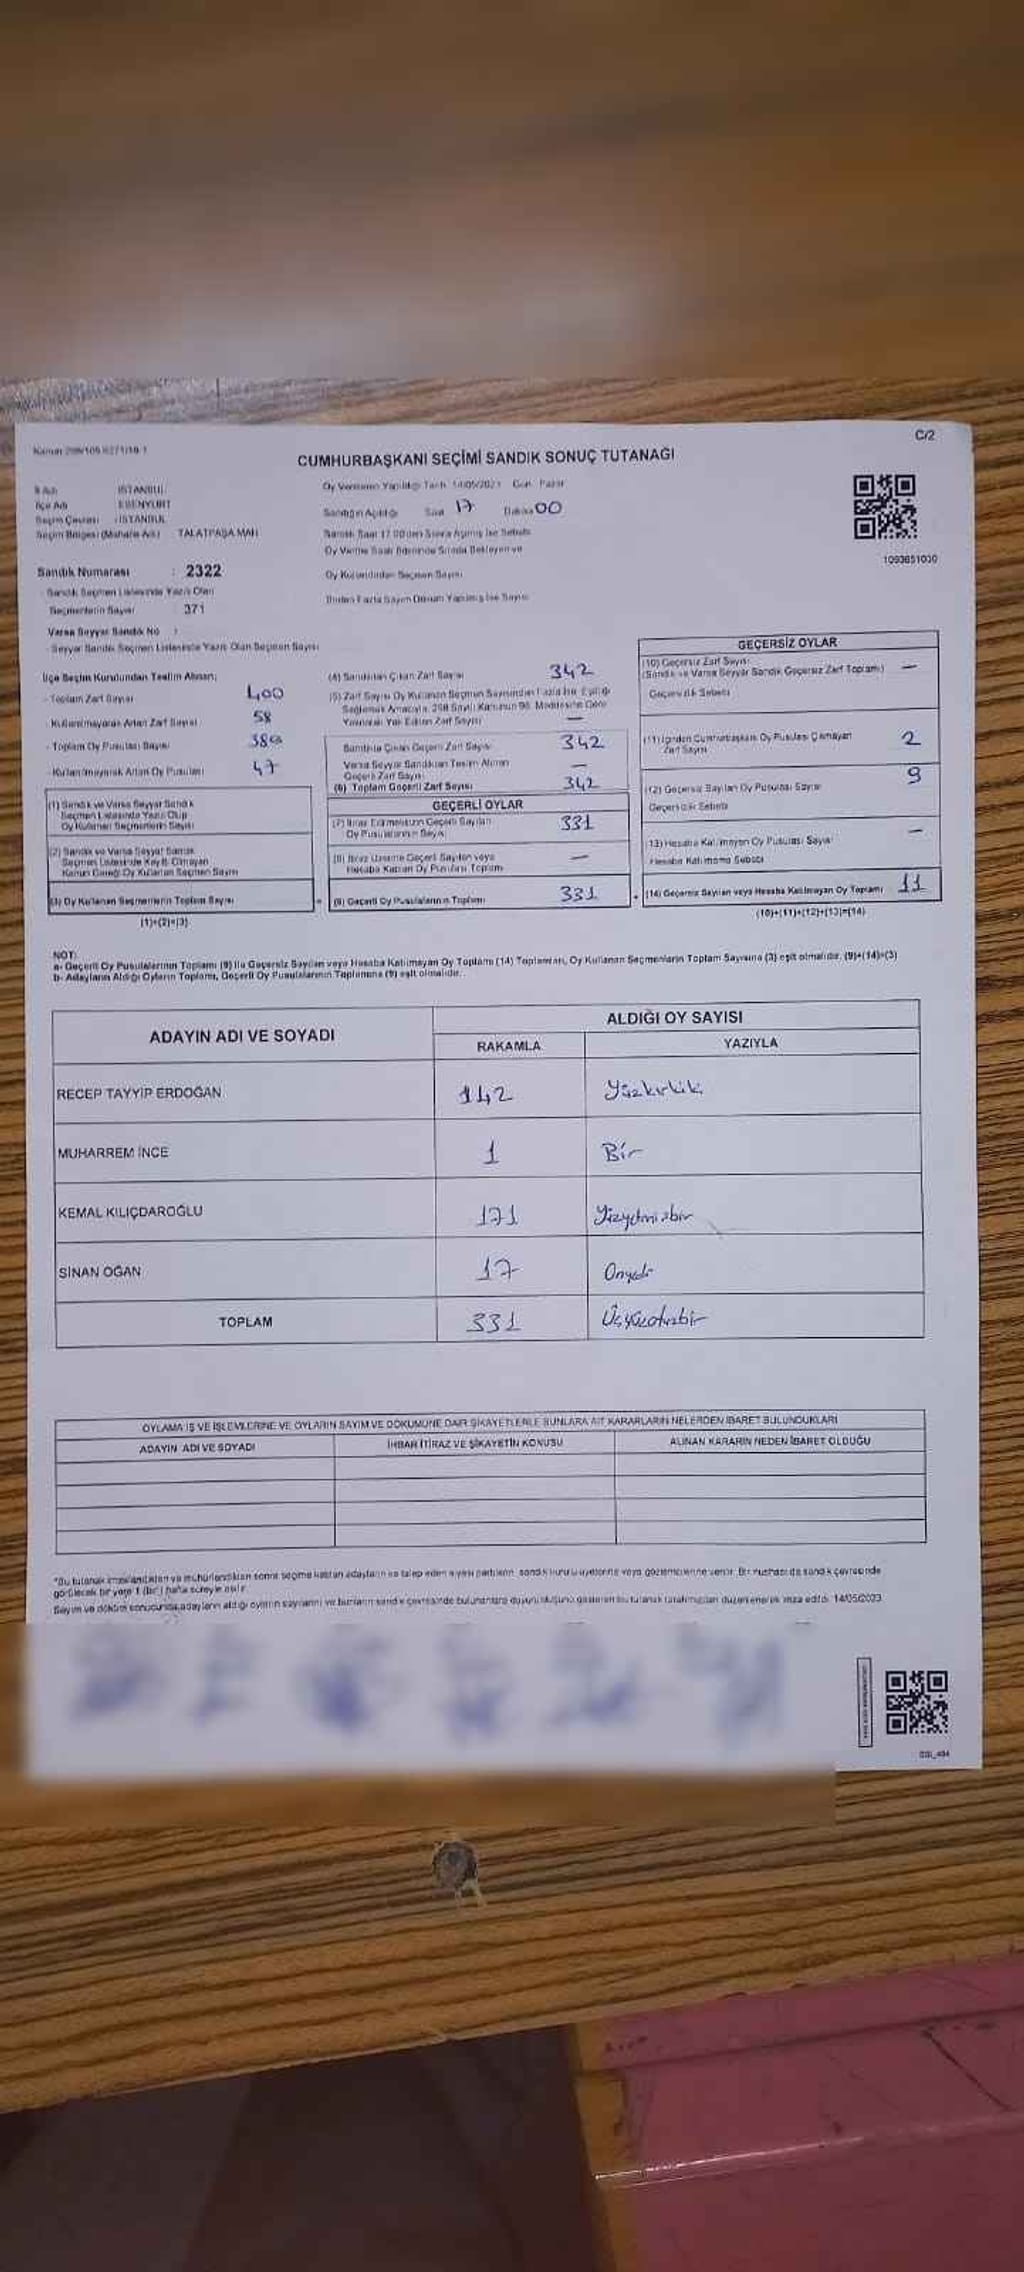 C/2
CUMHURBAŞKANI SEÇİMİ SANDIK SONUÇ TUTANAĞI
İl Adı : İSTANBUL
İlçe Adı : ESENYURT
Seçim Çevresi : İSTANBUL
Seçim Bölgesi (Mahalle Adı) TALATPAŞA MAH.
Oy Vermenin Yapıldığı Tarih: 14/05/2023 Gün: Pazar
Sandığın Açıldığı Saat 17 Dakika 00
Sandık Saat 17.00'den Sonra Açılmış İse Sebebi
Oy Verme Saati Bitiminde Sırada Bekleyen ve
Oy Kullandırılan Seçmen Sayısı
Birden Fazla Sayım Döküm Yapılmış İse Sayısı
1093651030
Sandık Numarası : 2322
Sandık Seçmen Listesinde Yazılı Olan
Seçmenlerin Sayısı 371
Varsa Seyyar Sandık No :
Seyyar Sandık Seçmen Listesinde Yazılı Olan Seçmen Sayısı
İlçe Seçim Kurulundan Teslim Alınan;
- Toplam Zarf Sayısı 400
- Kullanılmayarak Artan Zarf Sayısı 58
- Toplam Oy Pusulası Sayısı
- Kullanılmayarak Artan Oy Pusulası 47
(1) Sandık ve Varsa Seyyar Sandık
Seçmen Listesinde Yazılı Olup
Oy Kullanan Seçmenlerin Sayısı
(2) Sandık ve Varsa Seyyar Sandık
Seçmen Listesinde Kayıtlı Olmayan
Kanun Gereği Oy Kullanan Seçmen Sayısı
(3) Oy Kullanan Seçmenlerin Toplam Sayısı
(1)+(2)=(3)
(4) Sandıktan Çıkan Zarf Sayısı 342
(5) Zarf Sayısı Oy Kullanan Seçmen Sayısından Fazla İse, Eşitliği
Sağlamak Amacıyla, 298 Sayılı Kanunun 98. Maddesine Göre
Yakılarak Yok Edilen Zarf Sayısı —
Sandıkta Çıkan Geçerli Zarf Sayısı 342
Varsa Seyyar Sandıktan Teslim Alınan
Geçerli Zarf Sayısı —
(6) Toplam Geçerli Zarf Sayısı 342
GEÇERLİ OYLAR
(7) İtiraz Edilmeksizin Geçerli Sayılan
Oy Pusulalarının Sayısı 331
(8) İtiraz Üzerine Geçerli Sayılan veya
Hesaba Katılan Oy Pusulası Toplamı —
(9) Geçerli Oy Pusulalarının Toplamı 331
GEÇERSİZ OYLAR
(10) Geçersiz Zarf Sayısı
(Sandık ve Varsa Seyyar Sandık Geçersiz Zarf Toplamı) —
Geçersizlik Sebebi
(11) İçinden Cumhurbaşkanı Oy Pusulası Çıkmayan
Zarf Sayısı 2
(12) Geçersiz Sayılan Oy Pusulası Sayısı 9
Geçersizlik Sebebi
(13) Hesaba Katılmayan Oy Pusulası Sayısı —
Hesaba Katılmama Sebebi
(14) Geçersiz Sayılan veya Hesaba Katılmayan Oy Toplamı 11
(10)+(11)+(12)+(13)=(14)
NOT:
a- Geçerli Oy Pusulalarının Toplamı (9) ile Geçersiz Sayılan veya Hesaba Katılmayan Oy Toplamı (14) Toplamları, Oy Kullanan Seçmenlerin Toplam Sayısına (3) eşit olmalıdır. (9)+(14)=(3)
b- Adayların Aldığı Oyların Toplamı, Geçerli Oy Pusulalarının Toplamına (9) eşit olmalıdır.
ADAYIN ADI VE SOYADI
ALDIĞI OY SAYISI
RAKAMLA YAZIYLA
RECEP TAYYİP ERDOĞAN 142 Yüzkırkik
MUHARREM İNCE 1 Bir
KEMAL KILIÇDAROĞLU 171 Yüzyetmişbir
SİNAN OĞAN 17 Onyedi
TOPLAM 331 Üçyüzotuzbir
OYLAMA İŞ VE İŞLEMLERİNE VE OYLARIN SAYIM VE DÖKÜMÜNE DAİR ŞİKAYETLERLE BUNLARA AİT KARARLARIN NELERDEN İBARET BULUNDUKLARI
ADAYIN ADI VE SOYADI İHBAR İTİRAZ VE ŞİKAYETİN KONUSU ALINAN KARARIN NEDEN İBARET OLDUĞU